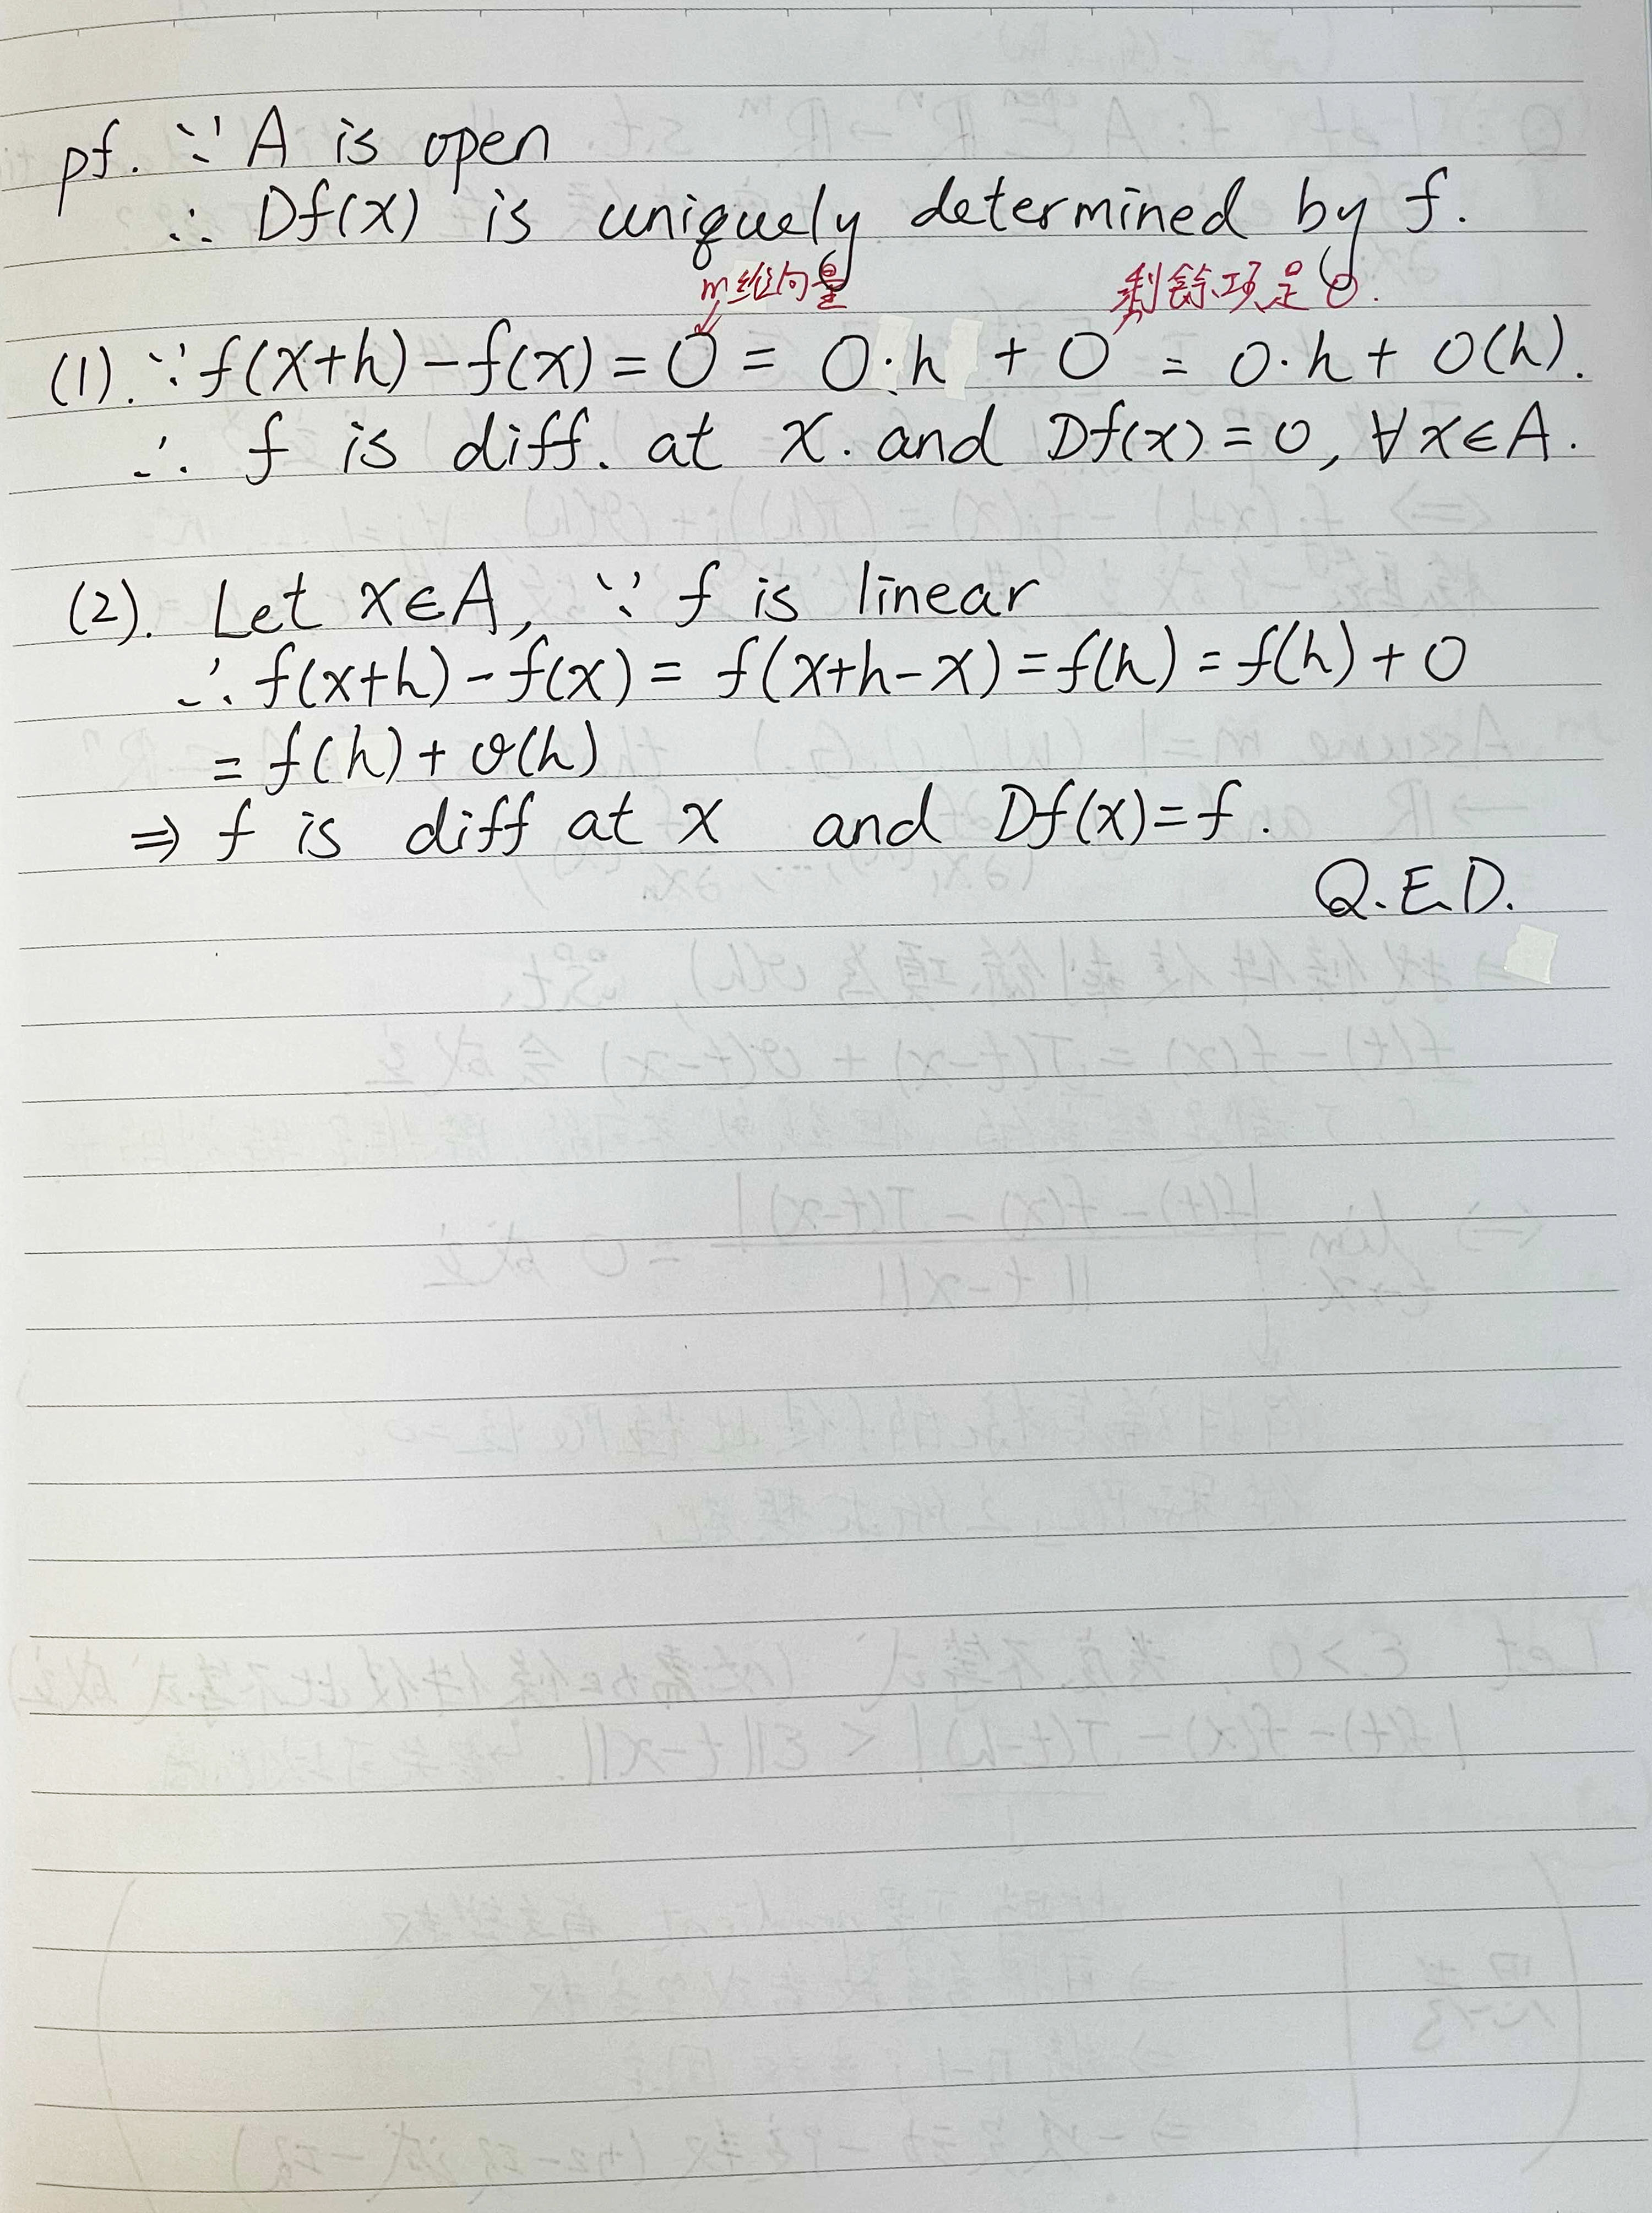 pf. ∵ A is open
∴ Df(x) is uniquely determined by f.
m维向量 剩餘项是0.
(1). ∵ f(x+h)-f(x)=0 = 0·h + 0 = 0·h + o(h).
∴ f is diff. at x. and Df(x)=0, ∀x∈A.
(2). Let x∈A, ∵ f is linear
∴ f(x+h)-f(x) = f(x+h-x)=f(h)=f(h)+0
= f(h)+o(h)
⇒ f is diff at x and Df(x)=f.
Q.E.D.